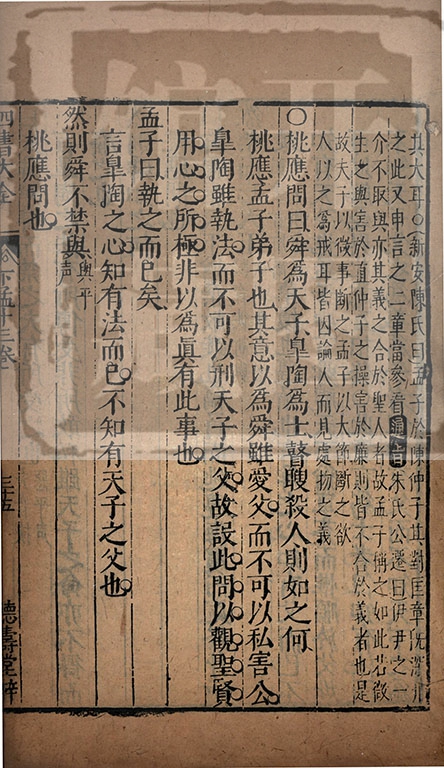 其大耳○新安陳氏曰孟子於陳仲子其對匡章既深斥
之此又申言之二章當參看通旨朱氏公遷曰伊尹之一
介不取與亦其義之合於聖人者故孟子稱之如此若微
生之與害於直仲子之操害於廉則皆不合於義者也是
故夫子以微事斷之孟子以大節斷之欲
人以之為戒耳皆因論人而見處物之義
○桃應問曰舜為天子皐陶為士瞽瞍殺人則如之何
桃應孟子弟子也其意以為舜雖愛父而不可以私害公
皐陶雖執法而不可以刑天子之父故設此問以觀聖賢
用心之所極非以為眞有此事也
孟子曰執之而已矣
言皐陶之心知有法而已不知有天子之父也
然則舜不禁與與平聲
桃應問也
四書大全 下孟十三卷 三十五 德壽堂梓